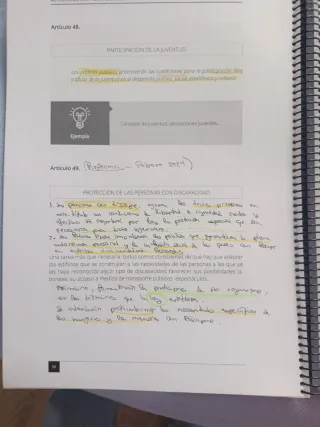 Artículo 48.
PARTICIPACIÓN DE LA JUVENTUD
Los poderes públicos promoverán las condiciones para la participación libre
y eficaz de la juventud en el desarrollo político, social, económico y cultural
Ejemplo
Consejos de juventud, asociaciones juveniles...
Artículo 49. (Reforma - Febrero 2024)
PROTECCIÓN DE LAS PERSONAS CON DISCAPACIDAD
1. Las personas con discap. ejercen los derechos previstos en
este título en condiciones de libertad e igualdad reales y
efectivas. Se regulará por ley la protección especial que sea
necesaria para dicho ejercicio.
2. Los Poderes Púb. impulsarán las políticas que garanticen la plena
autonomía personal y la inclusión social de las pers. con discap.
en entornos universalmente accesibles.
Una tarea más que necesaria, todos somos conscientes de que hay que adaptar
los edificios que se construyen a las necesidades de las personas a las que se
les haya reconocido algún tipo de discapacidad,
el acceso a medios de transporte públicos
Asimismo, fomentarán la participación de sus organizac.
en los términos que la ley establezca.
Se atenderán particularmente las necesidades específicas de
las mujeres y los menores con discapac.